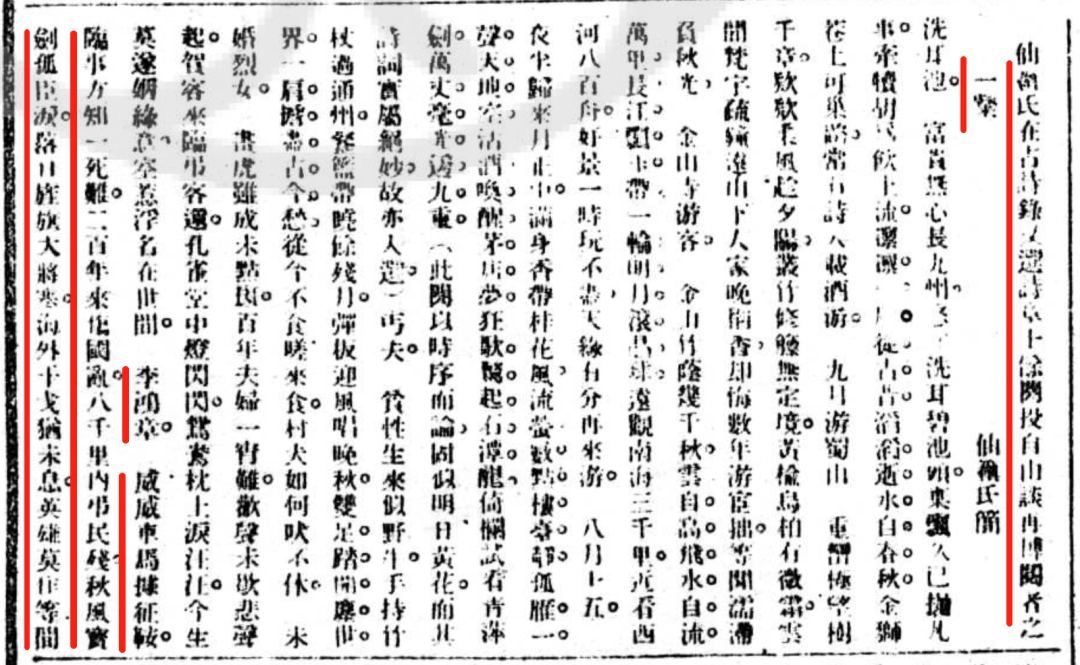 仙觀氏在古詩錄又選詩章十餘闋投自由談再博閱者之
一粲 仙觀氏簡
洗耳池。 富貴無心長九州。洗耳碧池頭。棄瓢久已拋凡
事牽犢胡為飲上流。凜凜從古昔滔滔逝水白春秋。金獅
上可巢常有詩人載酒游。 九月游蜀山 重巒極望樹
千章。欵欵柔風趁夕陽。叢竹修藤無定境。黃楡烏桕有微霜。雲
間梵宇疏鐘遠。山下人家晚稻香。却悔數年游宦拙。等閒滯
負秋光。 金山寺游客。 金山竹蔭幾千秋。雲自高飛水自流
萬里長江飄玉帶一輪明月滾球。遠觀南海三千里。近看西
河八百舟。好景一時玩不盡。天緣有分再來游。 八月十五。
夜坐歸來月正中。滿身香帶桂花風。流螢數點樓臺。孤雁一
聲天地空。沽酒喚醒茅店夢。狂歌驚起石潭龍。倚欄試看青萍
劍。萬丈毫光透九重。（此闋以時序而論固似明日黃花。而其
詩詞實屬絕妙。故亦入選）丐夫 賞性生來似野牛。手持竹
杖過通州。餐籃帶曉餘殘月。彈板迎風唱晚秋。雙足踏開塵世
界。一肩擔盡古今愁。從今不食嗟來食。村犬如何吠不休。 未
婚烈女。 畫虎雖成未點斑。百年夫婦一宵難。歡聲未歇悲聲
起。賀客來臨弔客還。孔雀堂中燈閃閃。鴛鴦枕上淚汪汪。今生
莫遂姻緣意。空惹浮名在世間。 李鴻章。 威威車馬據征鞍。
臨事方知一死難。二百年來國亂。八千里內弔民殘。秋風寶
劍孤臣淚。落日旌旗大將。海外干戈猶未息。英雄莫作等閒